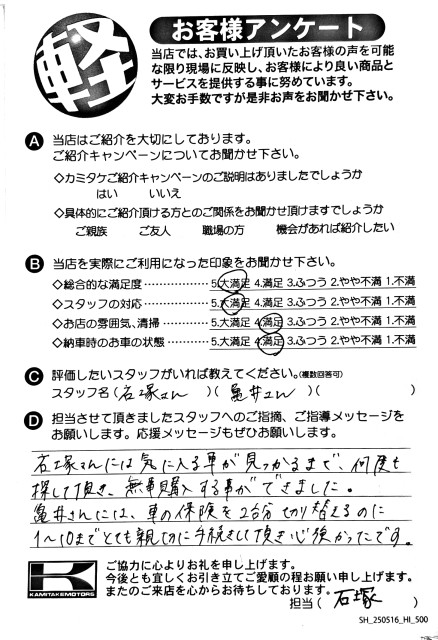 軽
お客様アンケート
当店では、お買い上げ頂いたお客様の声を可能
な限り現場に反映し、お客様により良い商品と
サービスを提供する事に努めています。
大変お手数ですが是非お声をお聞かせ下さい。
A 当店はご紹介を大切にしております。
ご紹介キャンペーンについてお聞かせ下さい。
◇カミタケご紹介キャンペーンのご説明はありましたでしょうか
はい いいえ
◇具体的にご紹介頂ける方とのご関係をお聞かせ頂けますでしょうか
ご親族 ご友人 職場の方 機会があれば紹介したい
B 当店を実際にご利用になった印象をお聞かせ下さい。
◇総合的な満足度 ……………… 5.大満足 4.満足 3.ふつう 2.やや不満 1.不満
◇スタッフの対応 ……………… 5.大満足 4.満足 3.ふつう 2.やや不満 1.不満
◇お店の雰囲気、清掃 ………… 5.大満足 4.満足 3.ふつう 2.やや不満 1.不満
◇納車時のお車の状態 ………… 5.大満足 4.満足 3.ふつう 2.やや不満 1.不満
C 評価したいスタッフがいれば教えてください。(複数回答可)
スタッフ名(石塚さん )(亀井さん )( )
D 担当させて頂きましたスタッフへのご指摘、ご指導メッセージを
お願いします。応援メッセージもぜひお願いします。
石塚さんには気に入る車が見つかるまで、何度も
探して頂き、無事購入する事ができました。
亀井さんには、車の保険を2台分切り替えるのに
1〜10までとても親切に手続きして頂き心強かったです。
KAMITAKEMOTORS
ご協力に心よりお礼を申し上げます。
今後とも宜しくお引き立てご愛顧の程お願い申し上げます。
またのご来店を心からお待ちしております。
担当( 石塚 )
SH_250516_HI_500